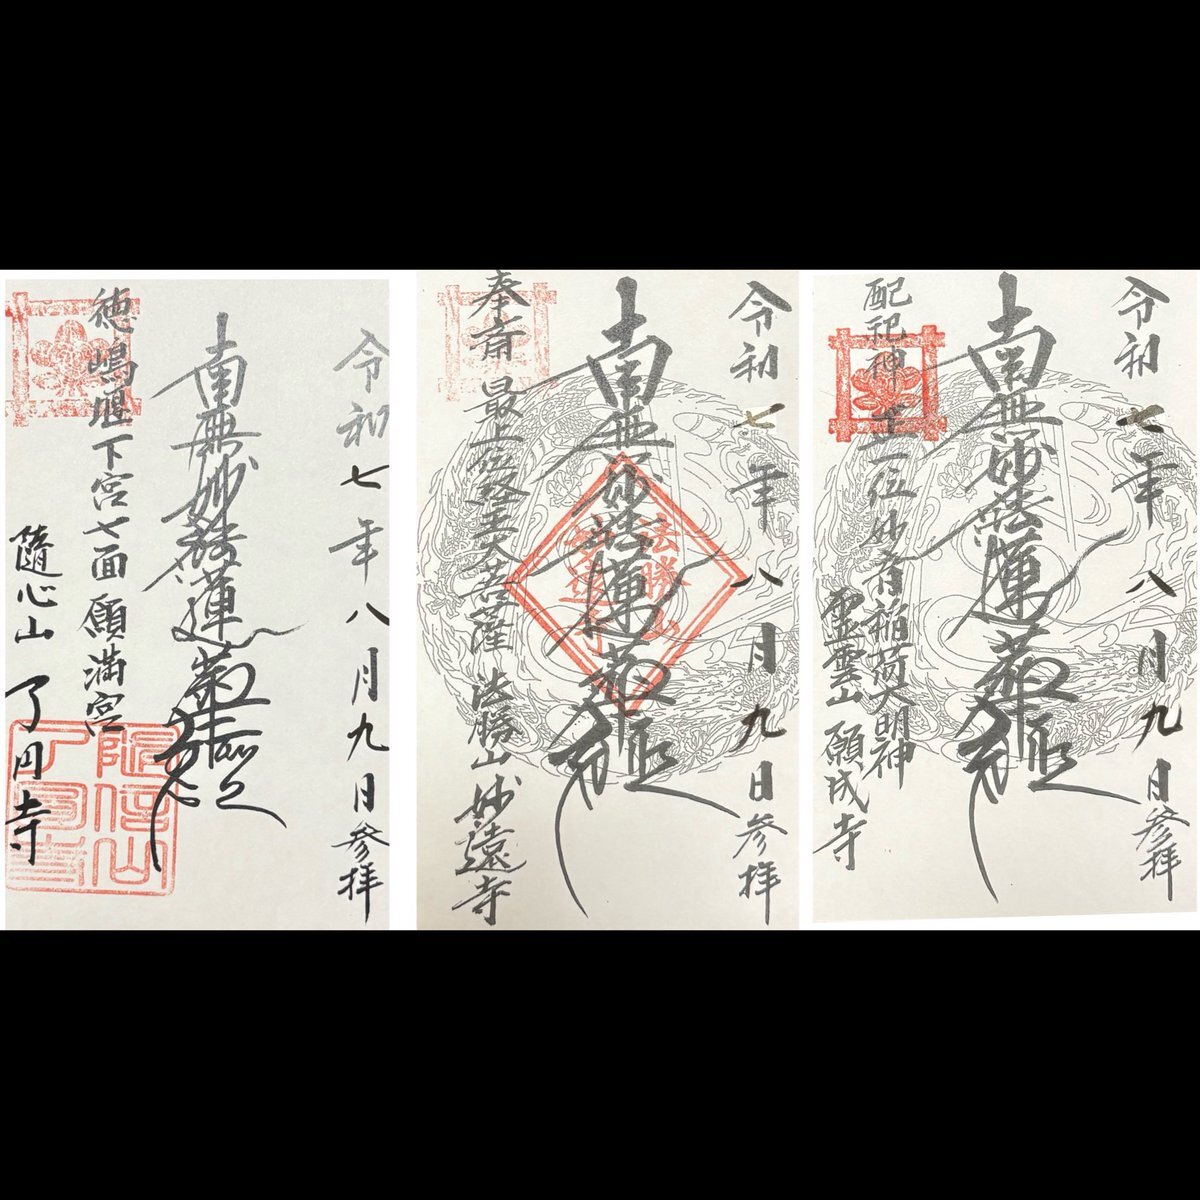 令和七年八月九日參拝
南無妙法蓮華経
徳嶋堰下宮七面願満宮
隨心山 了円寺
令和七年八月九日參拝
南無妙法蓮華経
奉斎 最上位経王大菩薩 法勝山 妙遠寺
法勝山
妙遠寺
令和七年八月九日參拝
南無妙法蓮華経
配祀神 正一位妙有稲荷大明神
霊雲山 願成寺